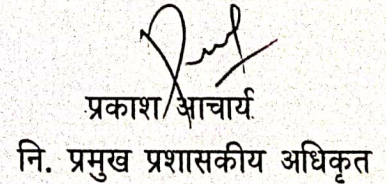 प्रकाश आचार्य
नि. प्रमुख प्रशासकीय अधिकृत